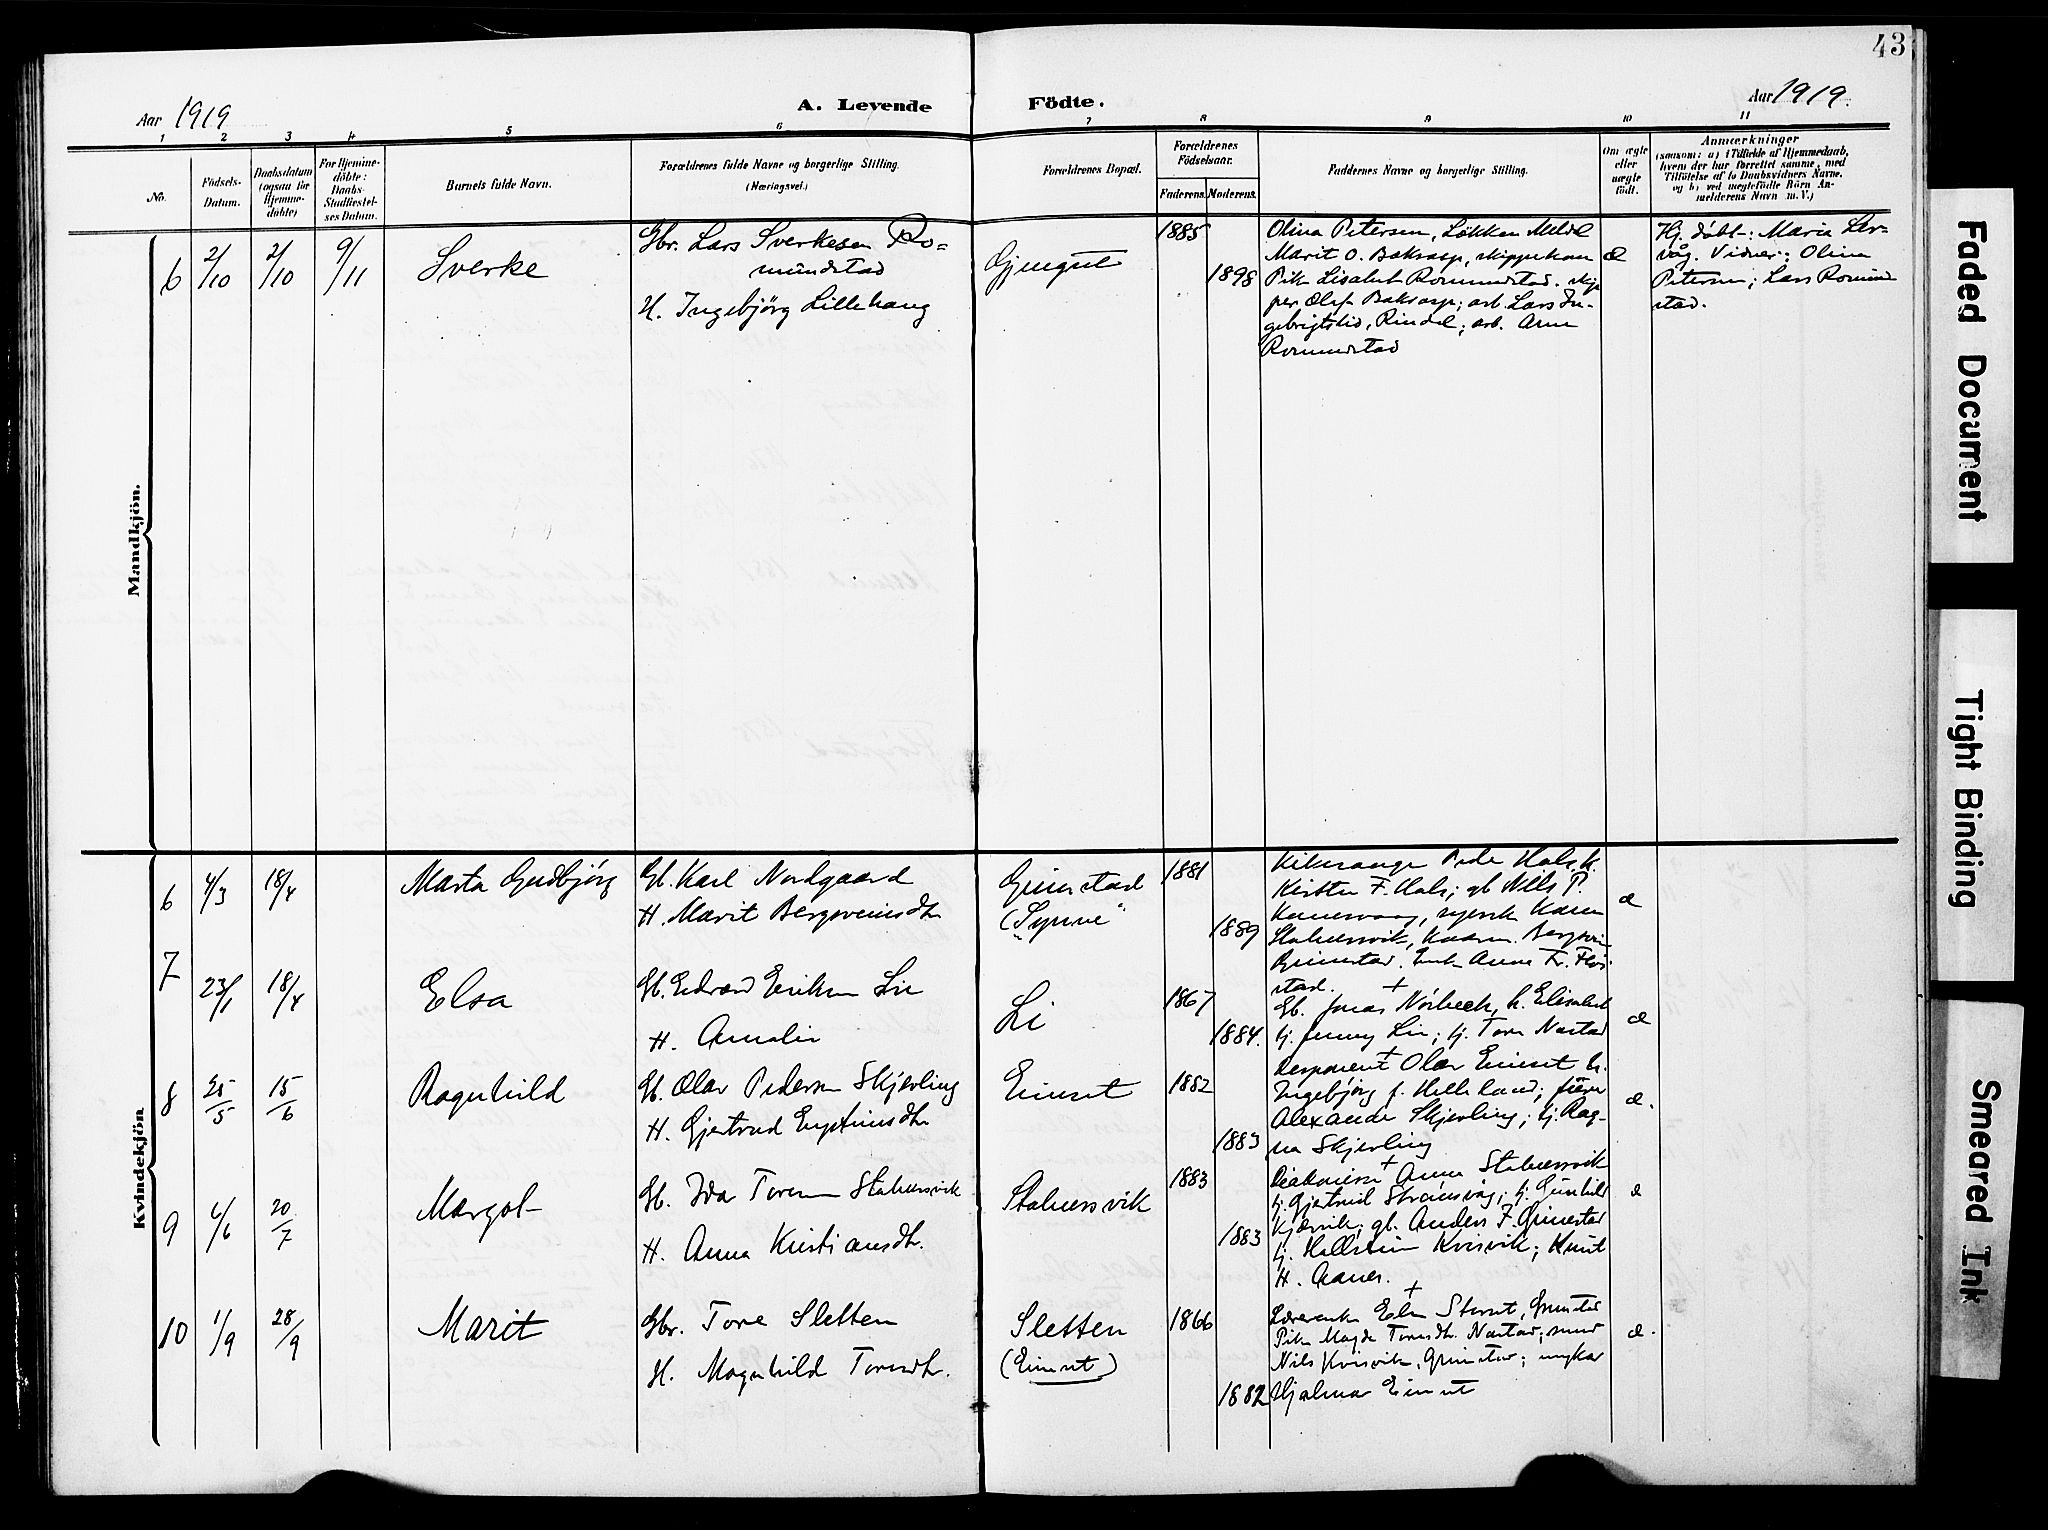 43
Aar 1919
A. Levende Födte.
Aar 1919.
1 2 3 4 5 6 7 8 9 10 11
No.
Födsels-
Datum.
Daabsdatum
(ogsaa for
Hjemme-
döbte)
For Hjemme-
döbte:
Daabs-
Stadfæstel-
ses Datum.
Barnets fulde Navn.
Forældrenes fulde Navne og borgerlige Stilling.
(Næringsvei.)
Forældrenes Bopæl.
Forældrenes
Födselsaar.
Faderens. Moderens.
Faddernes Navne og borgerlige Stilling.
Om ægte
eller
uægte
födt.
Anmærkninger
(saasom: a) i Tilfælde af Hjemmedaab,
hvem der har forrettet samme, med
Tilföielse af to Daabsvidners Navne,
og b) ved uægtefödte Börn An-
melderens Navn m. V.)
Mandkjön.
6 2/10 2/10 9/11 Sverke
Gbr. Lars Sverkesen Ro-
mundstad
H. Ingebjörg Lillehaug
1885
1898
Olina Petersen, Løkken Meldal
Marit O. Baksasp, skipperkone
Pike Lisabet Romundstad. skip
per Olaf Baksasp; arb. Lars In-
gebrigtslid, Rindal; arb. Arne
Romundstad
æ
Hj. døbt: Maria Ler-
våg. Vidner: Olina
Petersen; Lars Romund
stad.
Kvindekjön
6 4/3 18/4 Marta Gudbjörg
Gb. Karl Nordgaard
H. Marit Bergsveinsdtr
Grimstad
"(Synnve"
1881
1889
Kirkesanger Peder Hals, h.
Kirsten F. Hals; gb Nils P.
stad. +
æ
7 23/1 18/4 Elsa
Gb. Edvard Eriksen Lie
H. Amalie
Li
1867
1884.
Gb. Jonas Nørbeck, h. Elisabet
tj. Jenny Lie; tj. Tore Nastad
æ
8 25/5 15/6 Ragnhild
Gb. Olav Pedersen Skjerling
H. Gjertrud Eysteinsdtr
Einset
1882
1883
Disponent + Olav Einset h.
Ingebjørg f. Helleland; fiører
Alexander Skjerling; tj. Rag-
na Skjerling
æ.
9 6/6 20/7 Margot
Gb. Ida Toresen Stalversvik
H. Anna Kristiansdtr.
Stalversvik
1883
1883
Diakonisse + Anna Stalversvik
tj. Gjertrud Strømsvåg; tj. Gunhild
Kjørvik; gb. Anders F. Grimstad
tj. Hallstein Kvisvik; Knut
H. Aanes.
æ
10 1/9 28/9 Marit
Gbr. Tore Sletten
H. Magnhild Toresdtr.
Sletten
(Einset)
1866
1882
Lærerenke + Elen Storset, Grimstad
Pike Magda Toresdtr. Nastad; smed
Nils Kvisvik, Grimstad; ungkar
Hjalmar Einset
æ.
Faded Document
Tight Binding
Smeared Ink